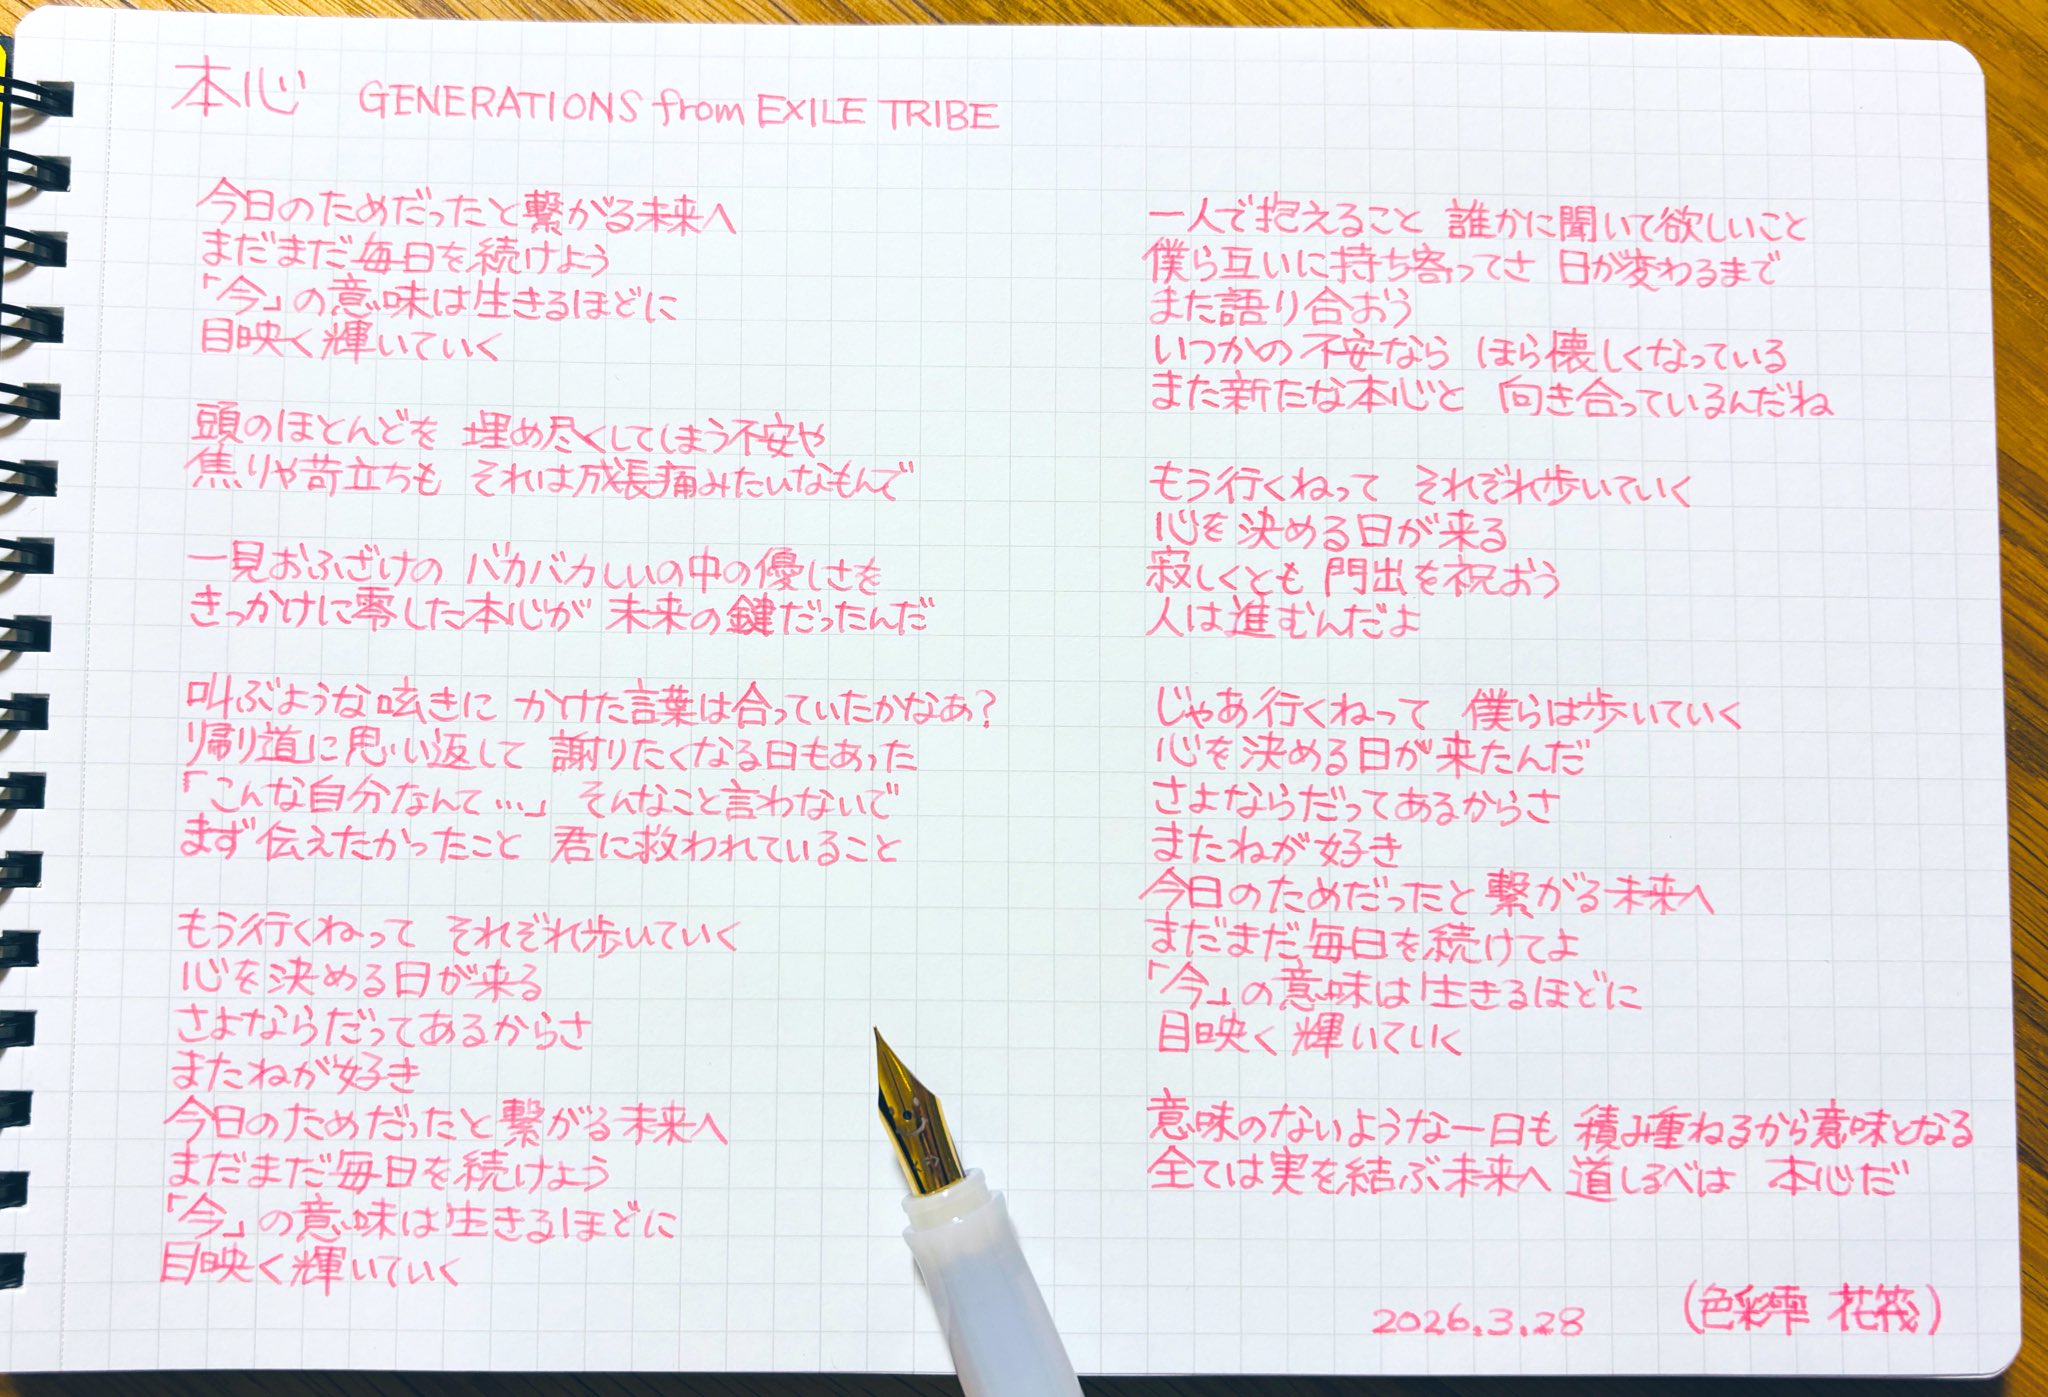 本心 GENERATIONS from EXILE TRIBE
今日のためだったと繋がる未来へ
まだまだ毎日を続けよう
「今」の意味は生きるほどに
目映く輝いていく
頭のほとんどを 埋め尽くしてしまう不安や
焦りや苛立ちも それは成長痛みたいなもんで
一見おふざけの バカバカしいの中の優しさを
きっかけに零した本心が 未来の鍵だったんだ
叫ぶような呟きに かけた言葉は合っていたかなあ?
帰り道に思い返して 謝りたくなる日もあった
「こんな自分なんて…」 そんなこと言わないで
まず伝えたかったこと 君に救われていること
もう行くねって それぞれ歩いていく
心を決める日が来る
さよならだってあるからさ
またねが好き
今日のためだったと繋がる未来へ
まだまだ毎日を続けよう
「今」の意味は生きるほどに
目映く輝いていく
一人で抱えること 誰かに聞いて欲しいこと
僕ら互いに持ち寄ってさ 日が変わるまで
また語り合おう
いつかの不安なら ほら懐しくなっている
また新たな本心と 向き合っているんだね
もう行くねって それぞれ歩いていく
心を決める日が来る
寂しくとも 門出を祝おう
人は進むんだよ
じゃあ行くねって 僕らは歩いていく
心を決める日が来たんだ
さよならだってあるからさ
またねが好き
今日のためだったと繋がる未来へ
まだまだ毎日を続けてよ
「今」の意味は生きるほどに
目映く輝いていく
意味のないような一日も 積み重ねるから意味となる
全ては実を結ぶ未来へ 道しるべは 本心だ
2026.3.28 (色彩雫 花筏)